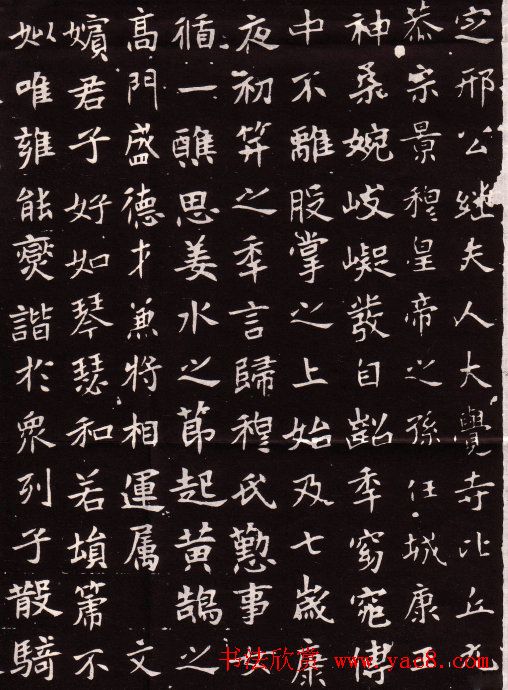 定邢公継夫人大覺寺比丘元
恭宗景穆皇帝之孫任城康王
神柔婉岐嶷發自齠年窈窕傳
中不離股掌之上始及七歲康
夜初笄之年言歸穆氏懃事
循一醮思姜水之節起黃鵠之
高門盛德才兼將相運属文
嬪君子好如琴瑟和若塤箎不
姒唯雍能燮諧於衆列子散騎
书法欣赏 www.yac8.com